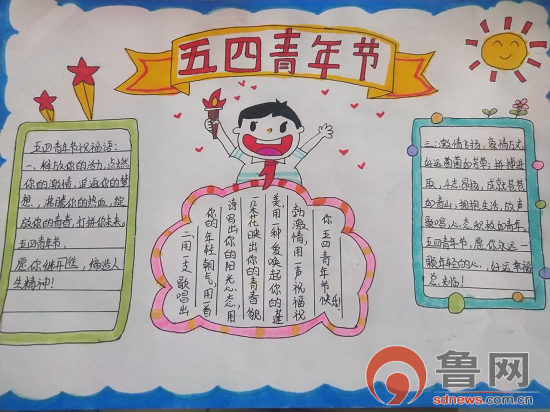 五四青年节
五四青年节祝福语:
一、释放你的活力,点燃
你的激情,追逐你的梦
想,沸腾你的热血,绽
放你的青春,打拼你未来。
五四青年节,
愿你继开,缔造人
生精神!
二、用一支歌唱出
你的年轻朝气,用一首
诗写出你的阳光心态,用
一朵花映出你的青春靓
美,用一种爱唤起你的蓬
勃激情,用一声祝福祝
你五四青年节快乐!
三、激情飞扬,豪情万丈,
好运如草;拼搏进
取,斗志昂扬,成就苍苍
如青山;拥抱生活,放声
歌唱,心态积极如青年。
五四青年节,愿你永远一
颗年轻的心,好运幸福
总光临!
鲁网
sdnews.com.cn